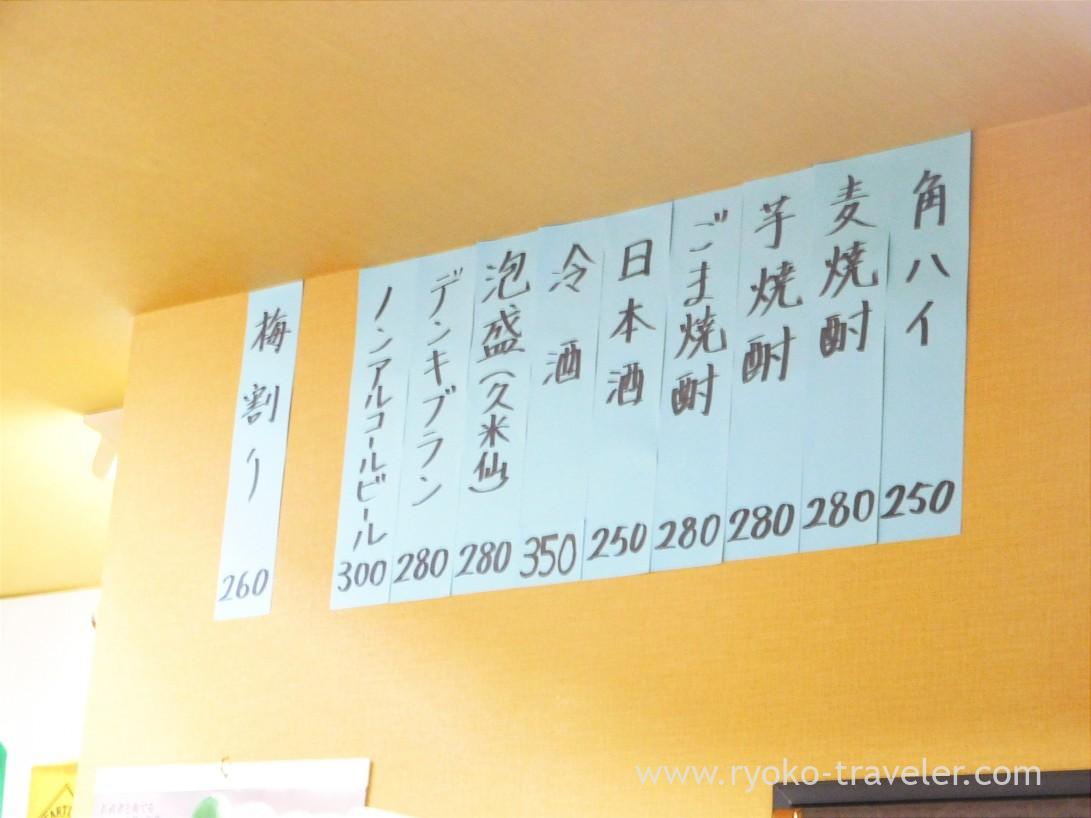 角ハイ 250
麦焼酎 280
芋焼酎 280
ごま焼酎 280
日本酒 250
冷酒 350
泡盛(久米仙) 280
デンキブラン 280
ノンアルコールビール 300
梅割り 260
www.ryoko-traveler.com